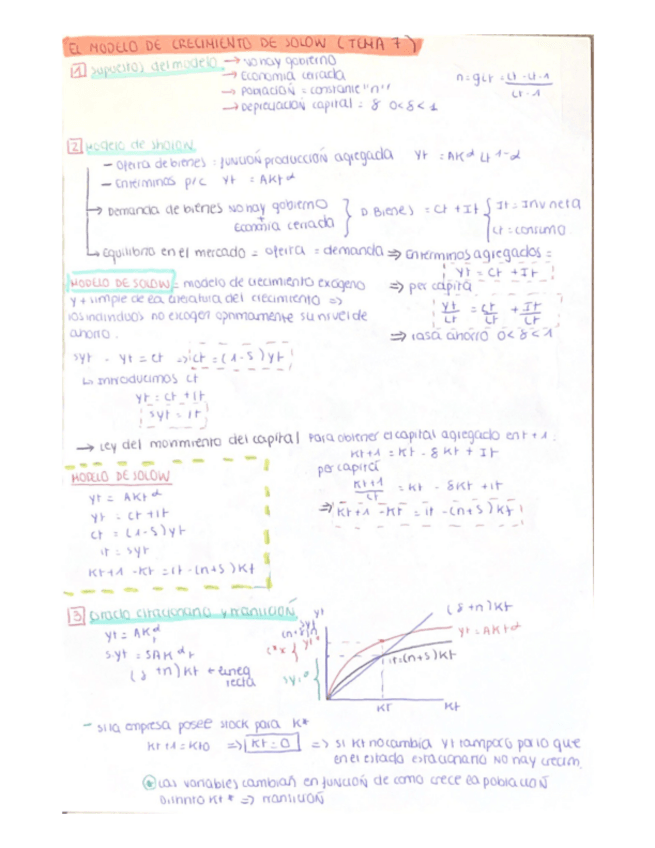 EL MODELO DE CRECIMIENTO DE SOLOW (TEMA 7)
1 supuestos del modelo → No hay gobierno
→ Economía cerrada
→ Población = constante "n"
→ Depreciación capital = δ 0<δ<1
n = gLt = (Lt - Lt-1) / Lt-1
2 Modelo de sholow
- Oferta de bienes = función producción agregada Yt = AKt^α Lt^1-α
- En términos p/c yt = AKt^α
→ Demanda de bienes No hay gobierno
Economía cerrada
D Bienes = Ct + It
It = Inv neta
Ct = consumo
→ Equilibrio en el mercado = oferta = demanda ⇒ En términos agregados =
Yt = Ct + It
⇒ per cápita
Yt/Lt = Ct/Lt + It/Lt
⇒ tasa ahorro 0<δ<1
MODELO DE SOLOW = modelo de crecimiento exógeno
y + simple de la literatura del crecimiento ⇒
los individuos no escogen óptimamente su nivel de
ahorro.
syt - yt = ct ⇒ ct = (1-s)yt
↳ Introducimos ct
yt = ct + it
syt = it
→ Ley del movimiento del capital Para obtener el capital agregado en t+1:
Kt+1 = Kt - δKt + It
per cápita
Kt+1/Lt = Kt - δKt + it
⇒ Kt+1 - Kt = it - (n+δ)Kt
MODELO DE SOLOW
yt = AKt^α
yt = ct + it
ct = (1-s)yt
it = syt
Kt+1 - Kt = it - (n+δ)Kt
3 Estado estacionario y transición
yt = AKt^α
s·yt = sAKt^α
(δ+n)Kt + línea
recta
yt
(δ+n)Kt
yt = AKt^α
it = (n+δ)Kt
Kt
Kt
- si la empresa posee stock para K*
Kt+1 = Kt0 ⇒ Kt = 0 ⇒ si Kt no cambia yt tampoco por lo que
en el estado estacionario no hay crecim.
Las variables cambian en función de como crece la población
Distinto Kt* ⇒ transición